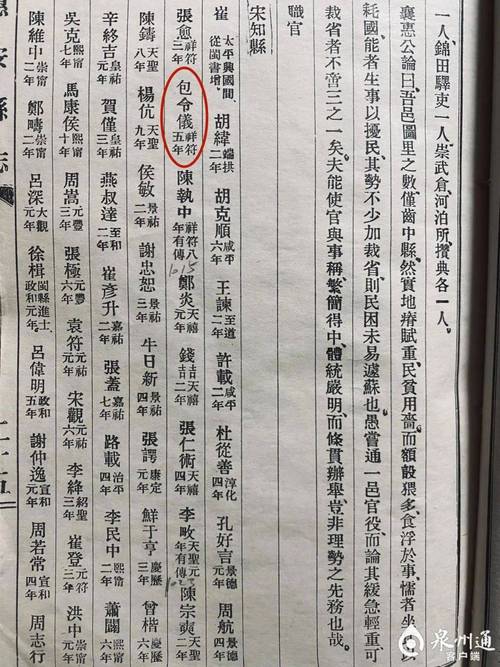 一人錦田驛吏一人崇武倉河泊所攢典各一人
襄惠公論曰吾邑圖里之數僅齒中縣然實地瘠賦重民貧用嗇而額設猥多食浮於事懦者坐
耗國能者生事以擾民其勢不少加裁省則民困未易遽蘇也愚嘗通一邑官役而論其緩急輕重可
裁省者不啻三之一矣夫能使官與事稱繁簡得中體統嚴明而條貫辦舉豈非理勢之先務也哉
職官
宋知縣
崔 太平興國間從閩書增 胡緯端拱二年 胡克順咸平二年 王諫至道二年 許載咸平二年 杜從善淳化四年 孔好言景德四年 周航景德四年
張愈祥符三年 包令儀祥符五年 陳執中祥符八年有傳 鄭炎天禧元年 錢吉天禧二年 張仁術天禧四年 李畋天聖元年有傳 陳宗奭天聖二年
陳鑄天聖八年 楊伉天聖九年 侯敏景祐二年 謝忠恕景祐三年 牛日新景祐四年 張諤康定元年 鮮于亨慶歷三年 曾楷慶歷六年
辛終吉皇祐元年 賀僅皇祐三年 燕叔達至和二年 崔彥升嘉祐二年 張蓋嘉祐七年 路載治平四年 李民中熙甯二年 蕭闢熙甯六年
吳克熙甯七年 馬康侯熙甯十年 周嵩元豐三年 張極元豐六年 袁符元祐元年 宋觀元祐六年 李絳紹聖三年 崔登元符三年 洪中元符元年
陳維中崇甯二年 鄭疇崇甯二年 呂深大觀元年 徐楫閩縣進士政和元年 呂偉明政和五年 謝仲逸宣和元年 周若常宣和四年 周志行
安縣志
二十五
泉州通
客戶端